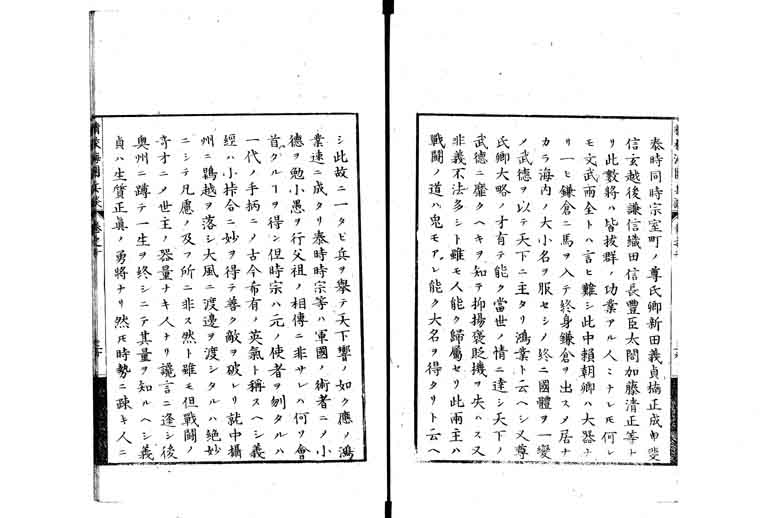 泰時同時宗室町ノ尊氏卿新田義貞楠正成甲斐
信玄越後謙信織田信長豊臣太閤加藤清正等ナ
リ此數將ハ皆抜群ノ功業アル人ミナレ𪜈何レ
モ文武兩全トハ言ヒ難シ此中頼朝卿ハ大器ナ
リ一ヒ鎌倉ニ馬ヲ入テ終身鎌倉ヲ出スノ居ナ
カラ海内ノ大小名ヲ服セシノ終ニ國體ヲ一變
ノ武德ヲ以テ天下ニ主タリ鴻業ト云ヘシ又尊
氏卿大略ノ才有テ能ク當世ノ情ニ達シ天下ノ
武德ニ靡クヘキヲ知テ抑揚褒貶機ヲ失ハス又
非義不法多シト雖モ人能ク歸屬セリ此兩主ハ
戰鬪ノ道ハ鬼モアレ能ク大名ヲ得タリト云ヘ
シ此故ニ一タビ兵ヲ擧テ天下響ノ如ク應ノ鴻
業速ニ成タリ泰時時宗等ハ軍國ノ術者ニノ小
德ヲ勉小愚ヲ行父祖ノ相傳ニ非サレハ何ソ會
首クルヿヲ得ン但時宗ハ元ノ使者ヲ刎タルハ
一代ノ手柄ニノ古今希有ノ英氣ト稱スヘシ義
經ハ小排合ニ妙ヲ得テ善ク敵ヲ破レリ就中攝
州ニ鵯越ヲ落シ大風ニ渡邊ヲ渡シタルハ絶妙
ニシテ凡慮ノ及フ所ニ非ス然ト雖モ但戰鬪ノ
奇才ニノ世主ノ器量ナキ人ナリ讒言ニ逢シ後
奥州ニ蹲テ一生ヲ終シニテ其量ヲ知ルヘシ義
貞ハ生質正眞ノ勇將ナリ然𪜈時勢ニ疎ク人ニ